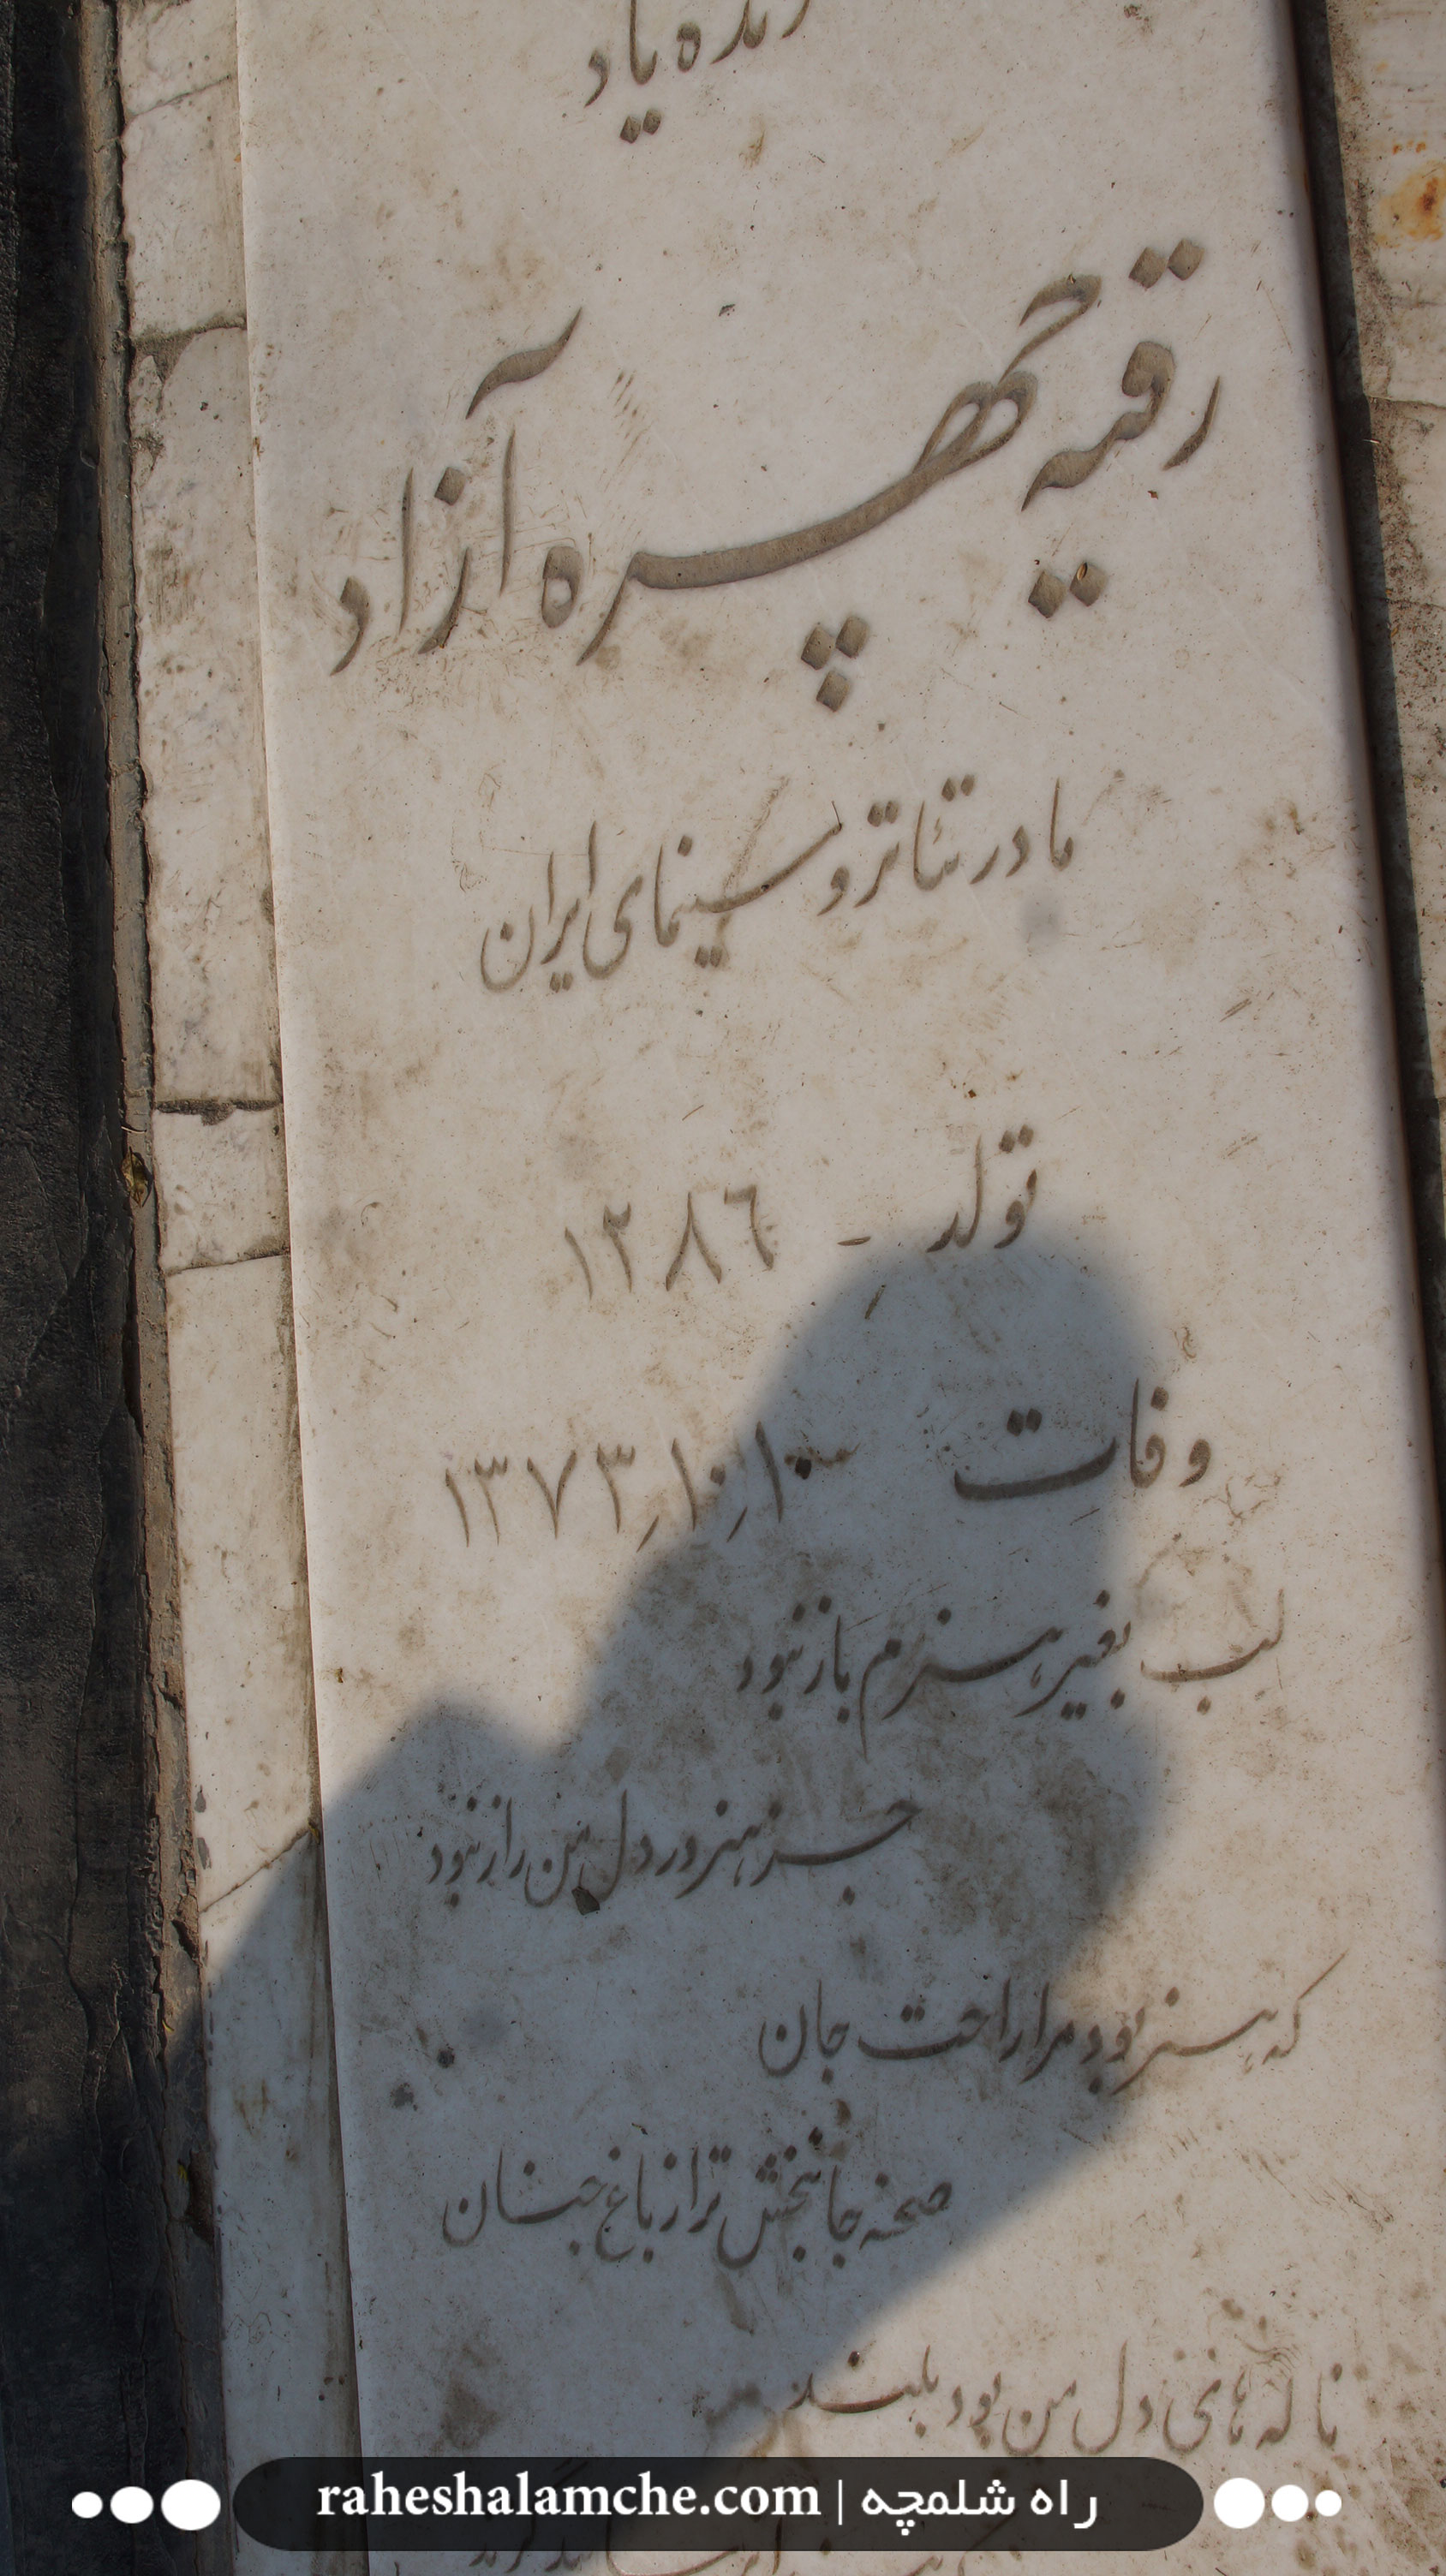 زنده یاد
رقیه چهره آزاد
مادر تئاتر و سینمای ایران
تولد - ۱۲۸۶
وفات ۱۳۷۳٫۱۰٫۱۰
لب بغیر هنرم باز نبود
جز هنر در دل من راز نبود
که هنر بود مرا راحت جان
صحنه جانبخش تر از باغ جنان
ناله های دل من بود بلند
راه شلمچه | raheshalamche.com